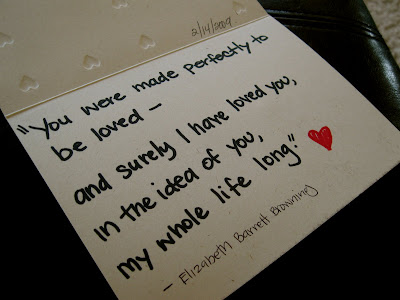 2/14/2009
"You were made perfectly to
be loved –
and surely I have loved you,
in the idea of you,
my whole life long."
– Elizabeth Barrett Browning